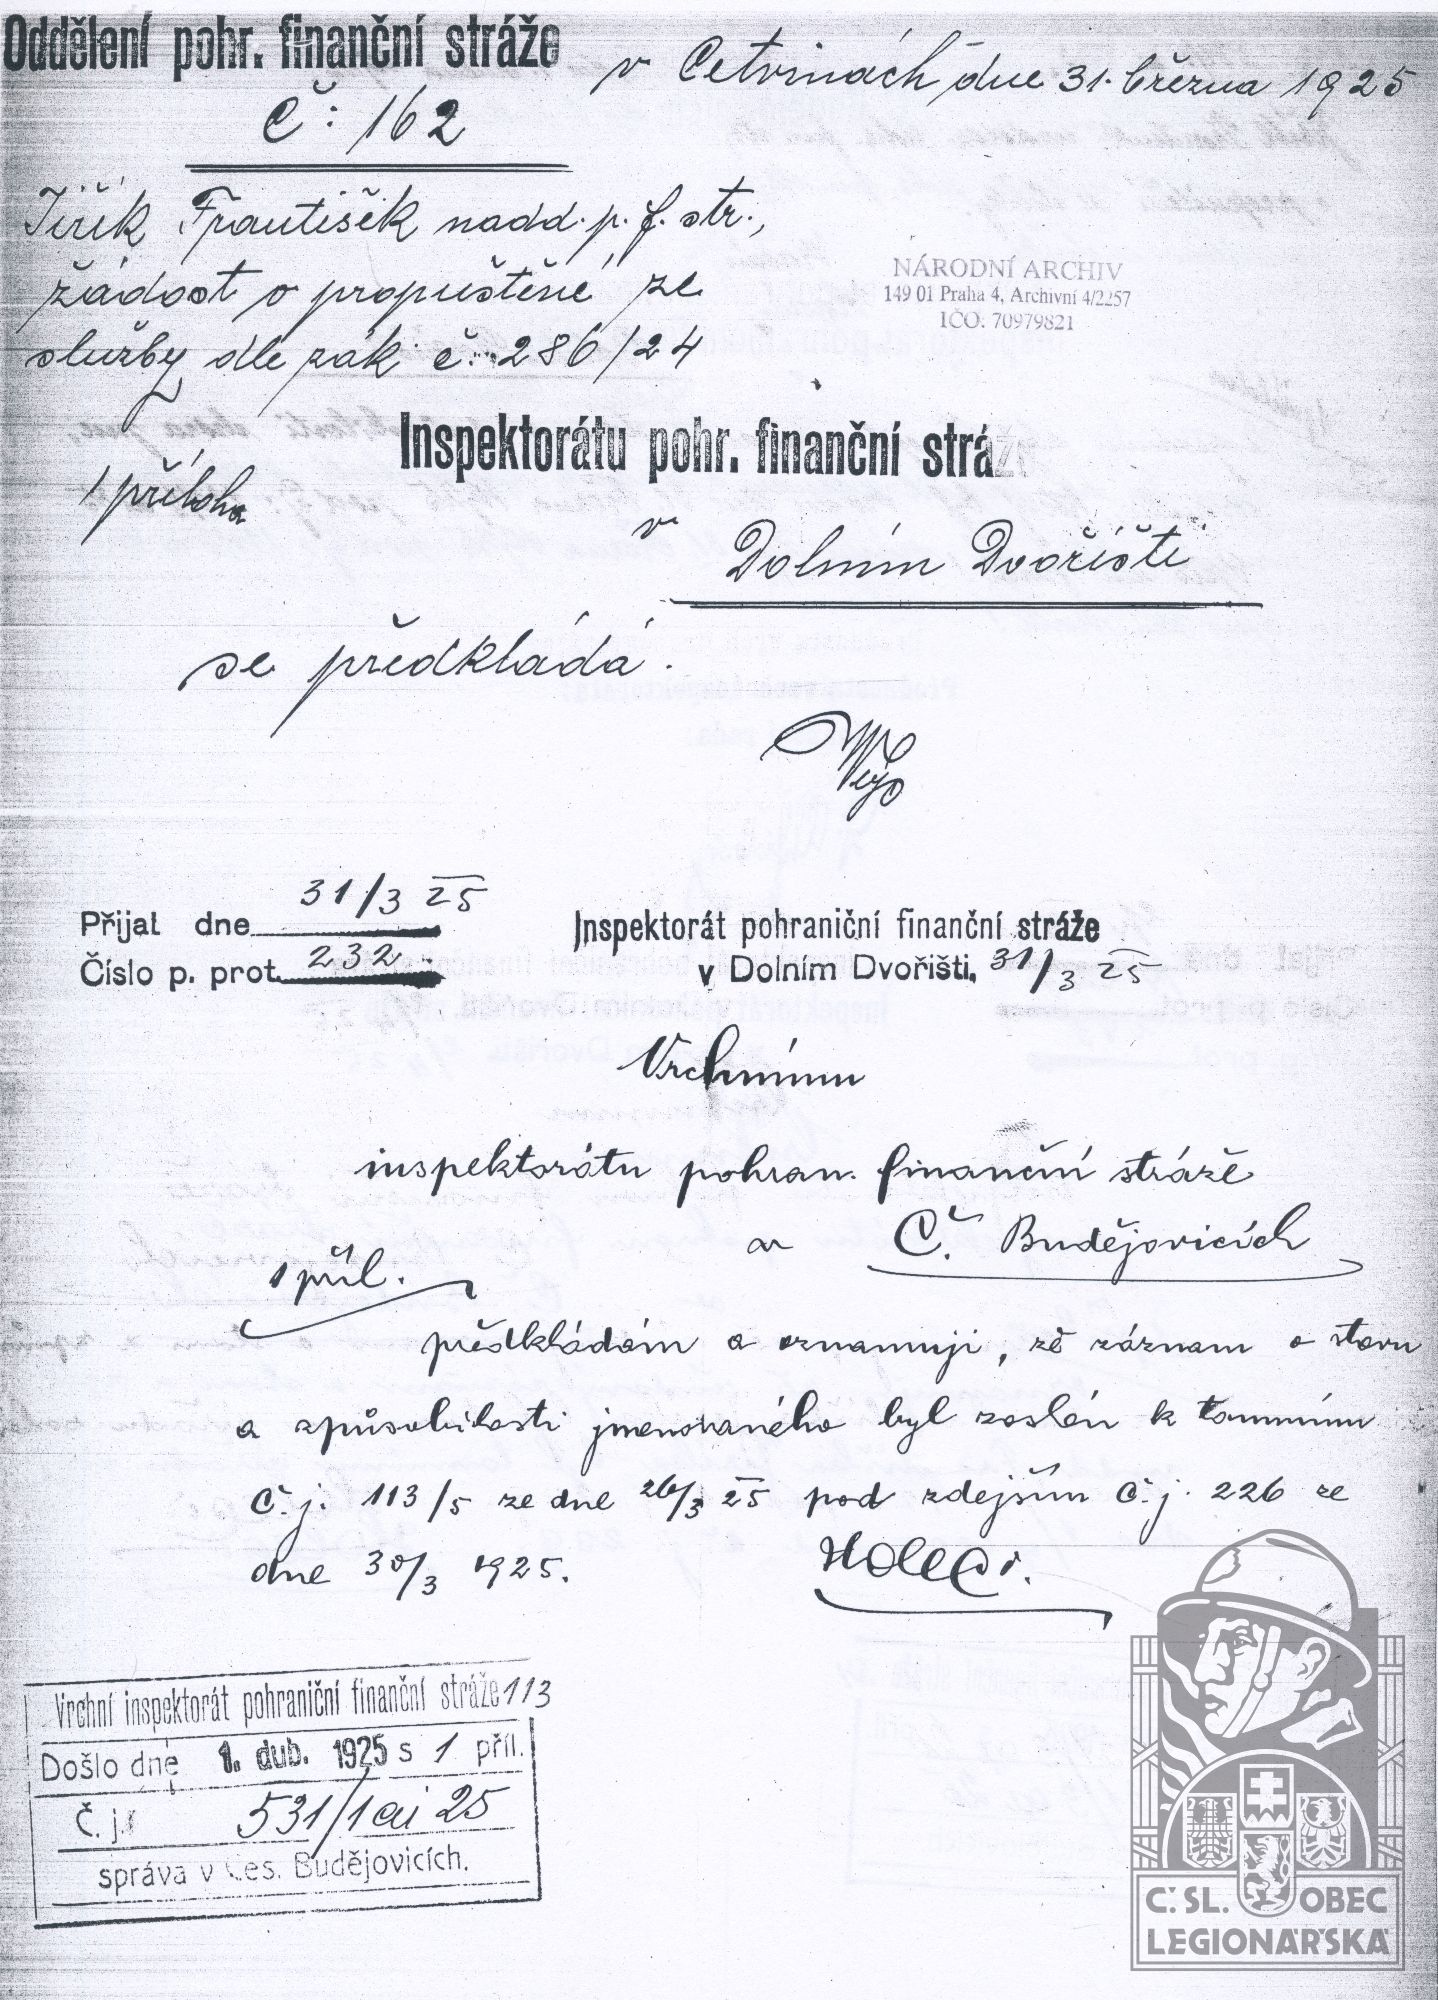 Oddělení pohr. finanční stráže
v Cetvinách dne 31. března 1925
č: 162
Jiřík František nadd. p. f. str.,
žádost o propuštěné ze
služby dle zák. č. 286/24
NÁRODNÍ ARCHIV
149 01 Praha 4, Archivní 4/2257
IČO: 70979821
Inspektorátu pohr. finanční stráž
1 příloha
v Dolním Dvořišti
se předkládá.
Přijal dne 31/3 25
Číslo p. prot. 232
Inspektorát pohraniční finanční stráže
v Dolním Dvořišti, 31/3 25
Vrchnímu
inspektorátu pohran. finanční stráže
v Č. Budějovicích
1 příl.
předkládám a oznamuji, že záznam o stavu
a způsobilosti jmenovaného byl zaslán k tamnímu
č. j. 113/5 ze dne 26/3 25 pod zdejším č. j. 226 ze
dne 30/3 1925.
Vrchní inspektorát pohraniční finanční stráže 113
Došlo dne 1. dub. 1925 s 1 příl.
Č. j. 531/1 ai 25
správa v Čes. Budějovicích.
Č.SL. OBEC
LEGIONÁŘSKÁ